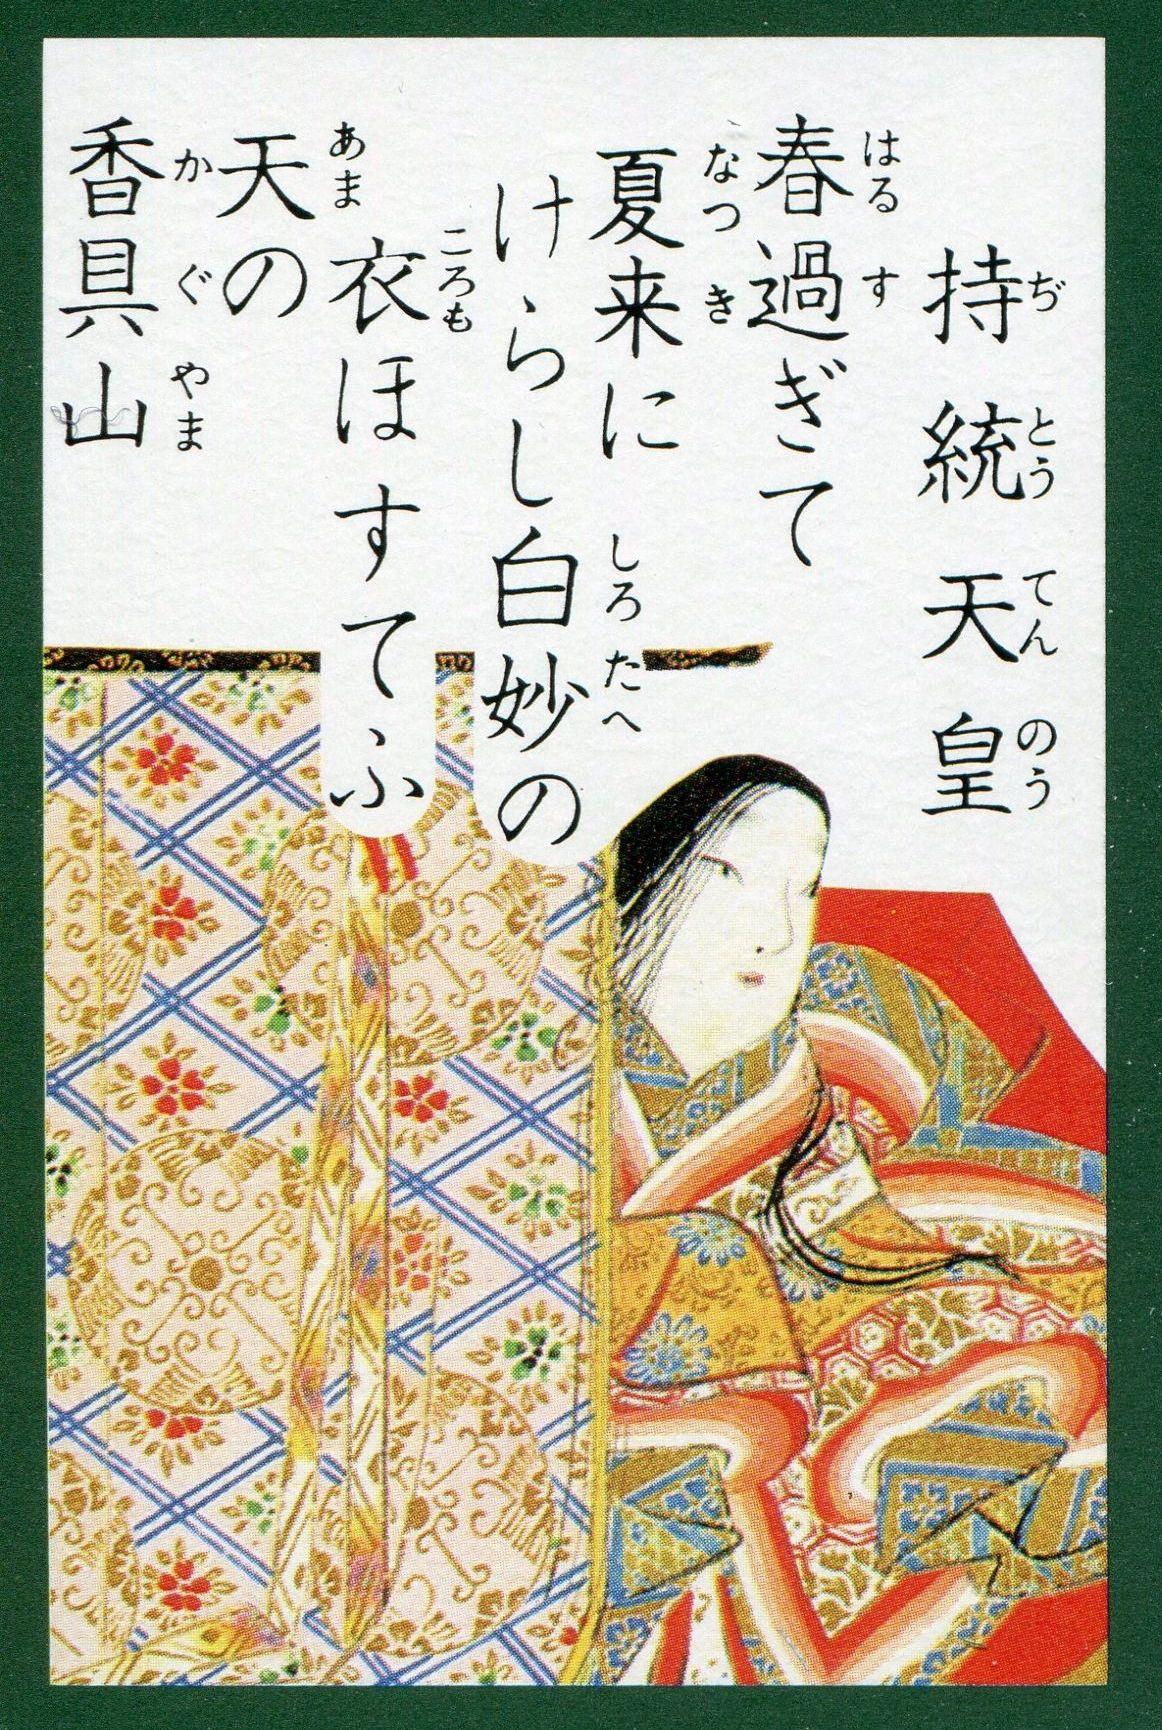 持統天皇
ぢとうてんのう
春過ぎて
はるす
夏来に
なつき
けらし白妙の
しろたへ
衣ほすてふ
ころも
天の
あま
香具山
かぐやま